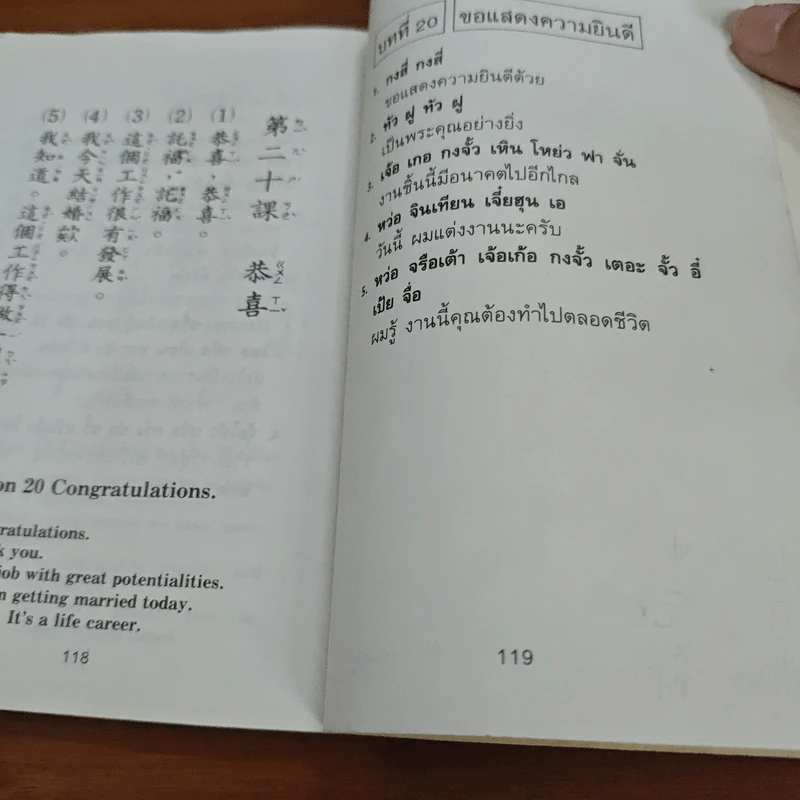 第二十課 恭喜
(1) 恭喜，恭喜。
(2) 託福，託福。
(3) 這個工作很有發展。
(4) 我今天結婚欸。
(5) 我知道。這個工作得做一
on 20 Congratulations.
ratulations.
k you.
job with great potentialities.
n getting married today.
It's a life career.
118
บทที่ 20 ขอแสดงความยินดี
1. กงสี่ กงสี่
ขอแสดงความยินดีด้วย
2. ทัว ฝู ทัว ฝู
เป็นพระคุณอย่างยิ่ง
3. เจ้อ เกอ กงจั้ว เหิน โหย่ว ฟา จั่น
งานชิ้นนี้มีอนาคตไปอีกไกล
4. หว่อ จินเทียน เจี๋ยฮุน เอ
วันนี้ ผมแต่งงานนะครับ
5. หว่อ จรือเต้า เจ้อเก้อ กงจั้ว เตอะ จั้ว อี๋
เป้ย จื่อ
ผมรู้ งานนี้คุณต้องทำไปตลอดชีวิต
119